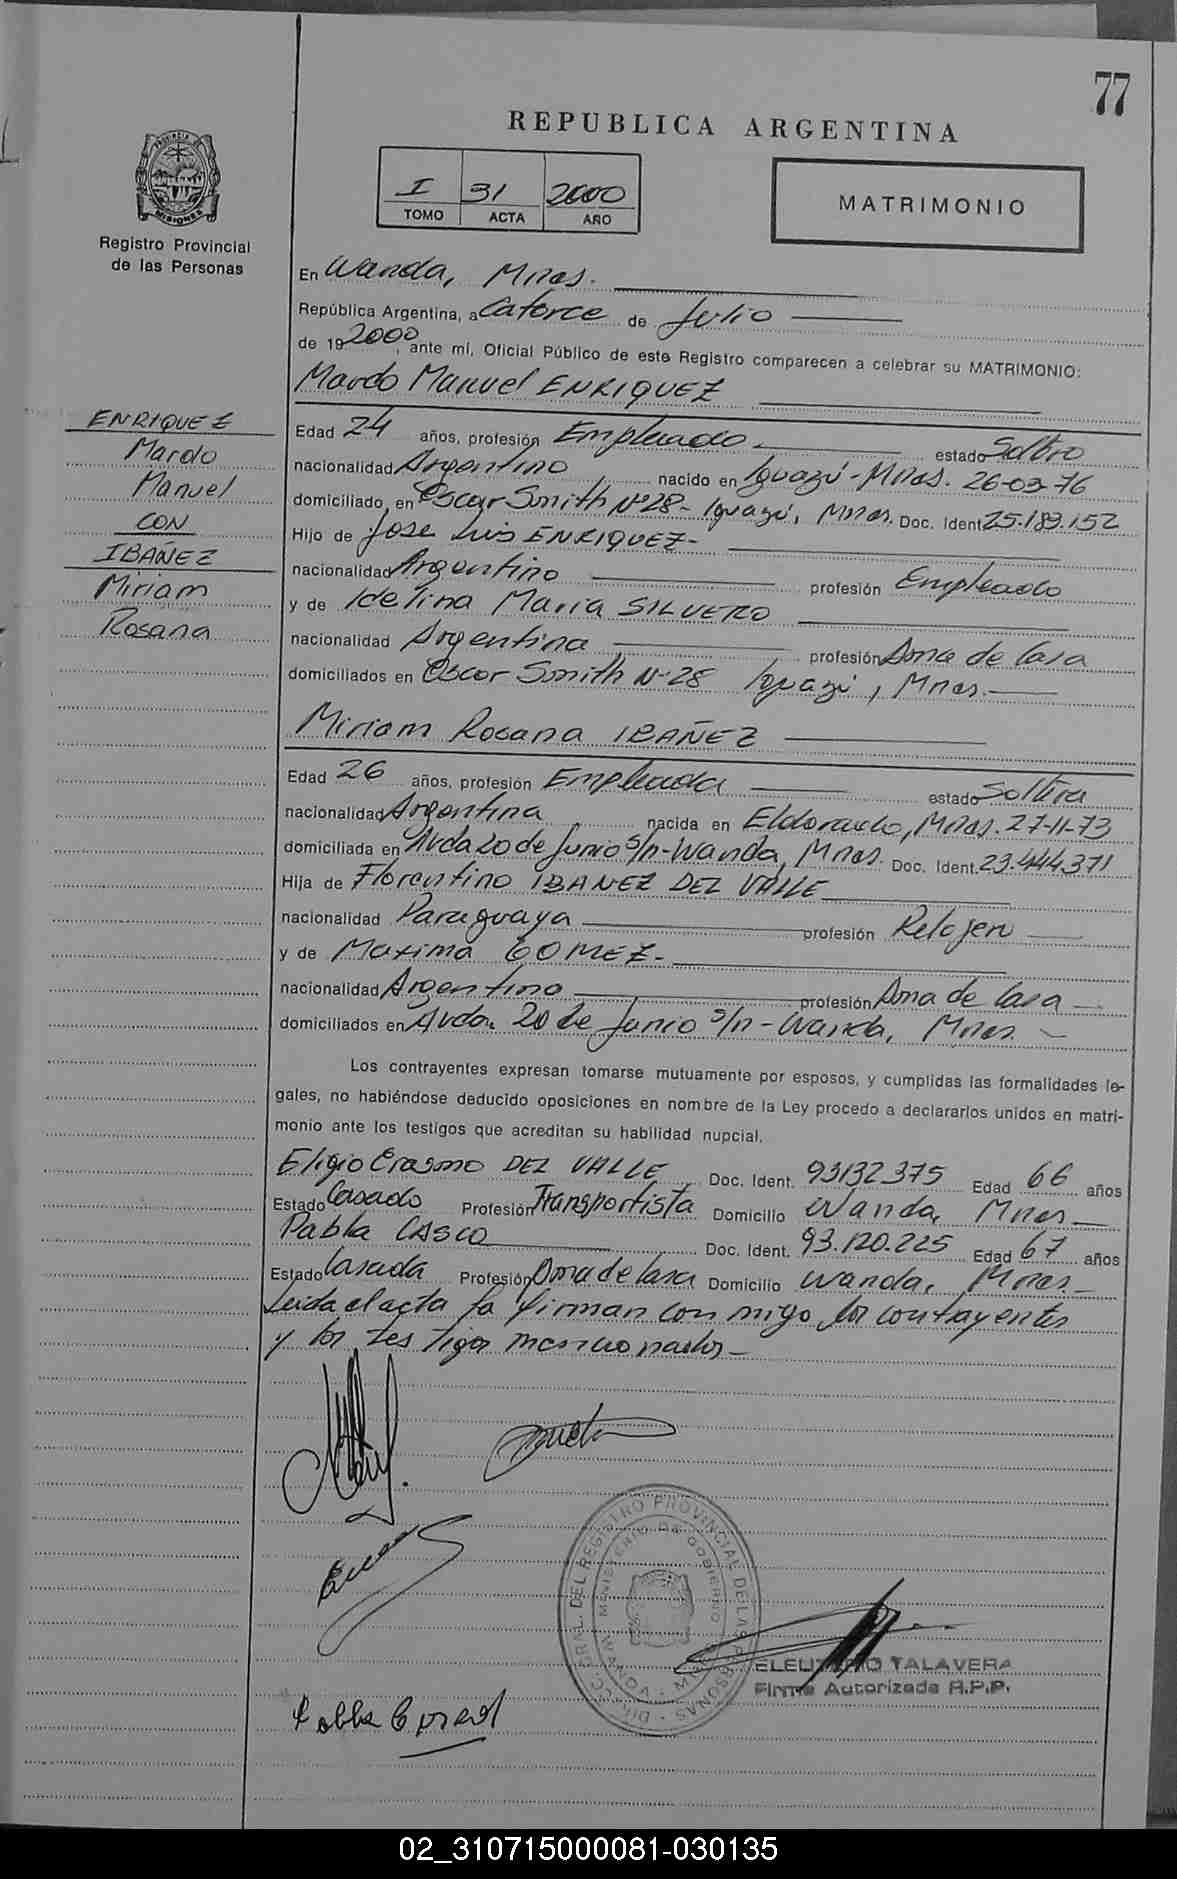 77
REPUBLICA ARGENTINA
PROVINCIA
MISIONES
Registro Provincial
de las Personas
I 31 2000
TOMO ACTA AÑO
MATRIMONIO
En Wanda, Mnes.
República Argentina, a Catorce de Julio
de 19 2000, ante mí, Oficial Público de este Registro comparecen a celebrar su MATRIMONIO:
Mardo Manuel ENRIQUEZ
ENRIQUEZ
Mardo
Manuel
CON
IBAÑEZ
Miriam
Rosana
Edad 24 años, profesión Empleado. estado Soltero
nacionalidad Argentino nacido en Iguazú - Mnes. 26-03-76
domiciliado en Oscar Smith Nº 28 - Iguazú, Mnes. Doc. Ident. 25.183.152
Hijo de Jose Luis ENRIQUEZ-
nacionalidad Argentino profesión Empleado
y de Idelina Maria SILVERO
nacionalidad Argentina profesión Ama de Casa
domiciliados en Oscar Smith Nº 28 Iguazú, Mnes.
Miriam Rosana IBAÑEZ
Edad 26 años, profesión Empleada estado Soltera
nacionalidad Argentina nacida en Eldorado, Mnes. 27-11-73
domiciliada en Avda 20 de Junio s/n - Wanda, Mnes. Doc. Ident. 23.444.371
Hija de Florentino IBAÑEZ DEL VALLE
nacionalidad Paraguaya profesión Relojero
y de Maxima GOMEZ-
nacionalidad Argentina profesión Ama de Casa
domiciliados en Avda. 20 de Junio s/n - Wanda, Mnes.
Los contrayentes expresan tomarse mutuamente por esposos, y cumplidas las formalidades le-
gales, no habiéndose deducido oposiciones en nombre de la Ley procedo a declararlos unidos en matri-
monio ante los testigos que acreditan su habilidad nupcial.
Eligio Erasmo DEL VALLE Doc. Ident. 93132375 Edad 66 años
Estado Casado Profesión Transportista Domicilio Wanda, Mnes
Pabla CASCO Doc. Ident. 93.120.225 Edad 67 años
Estado Casada Profesión Ama de Casa Domicilio Wanda, Mnes.
Leida el acta la firman conmigo los contrayentes
y los testigos mencionados-
DIREC. GRAL. DEL REGISTRO PROVINCIAL DE LAS PERSONAS
MINISTERIO DE GOBIERNO
WANDA
ELEUTERIO TALAVERA
Firma Autorizada R.P.P.
02_310715000081-030135